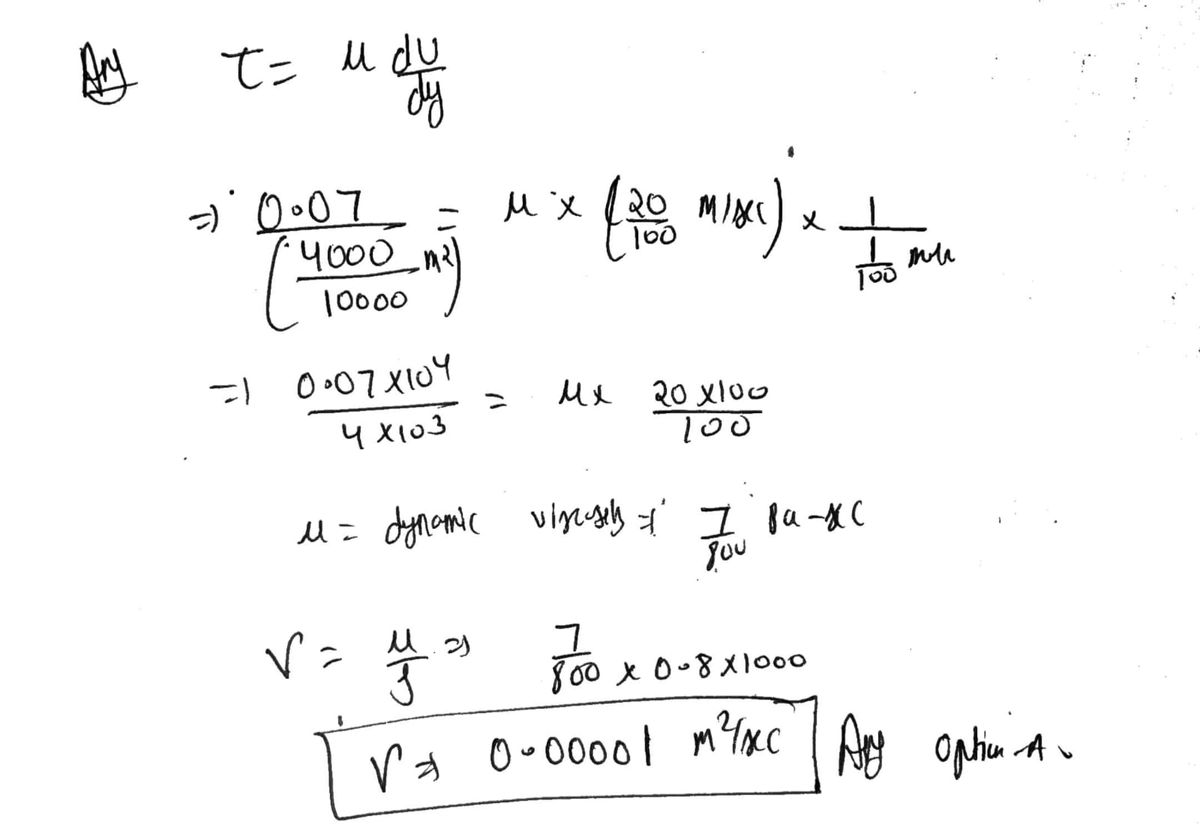 Ans τ = μ du/dy
=> 0.07/(4000/10000 m2) = μ x (20/100 m/sec) x 1/(1/100 mtr)
=> 0.07 x 10^4/4 x 10^3 = μ x 20 x 100/100
μ = dynamic viscosity => 7/800 Pa-sec
ν = μ/ρ => 7/800 x 0.8 x 1000
ν => 0.00001 m^2/sec Ans option-A